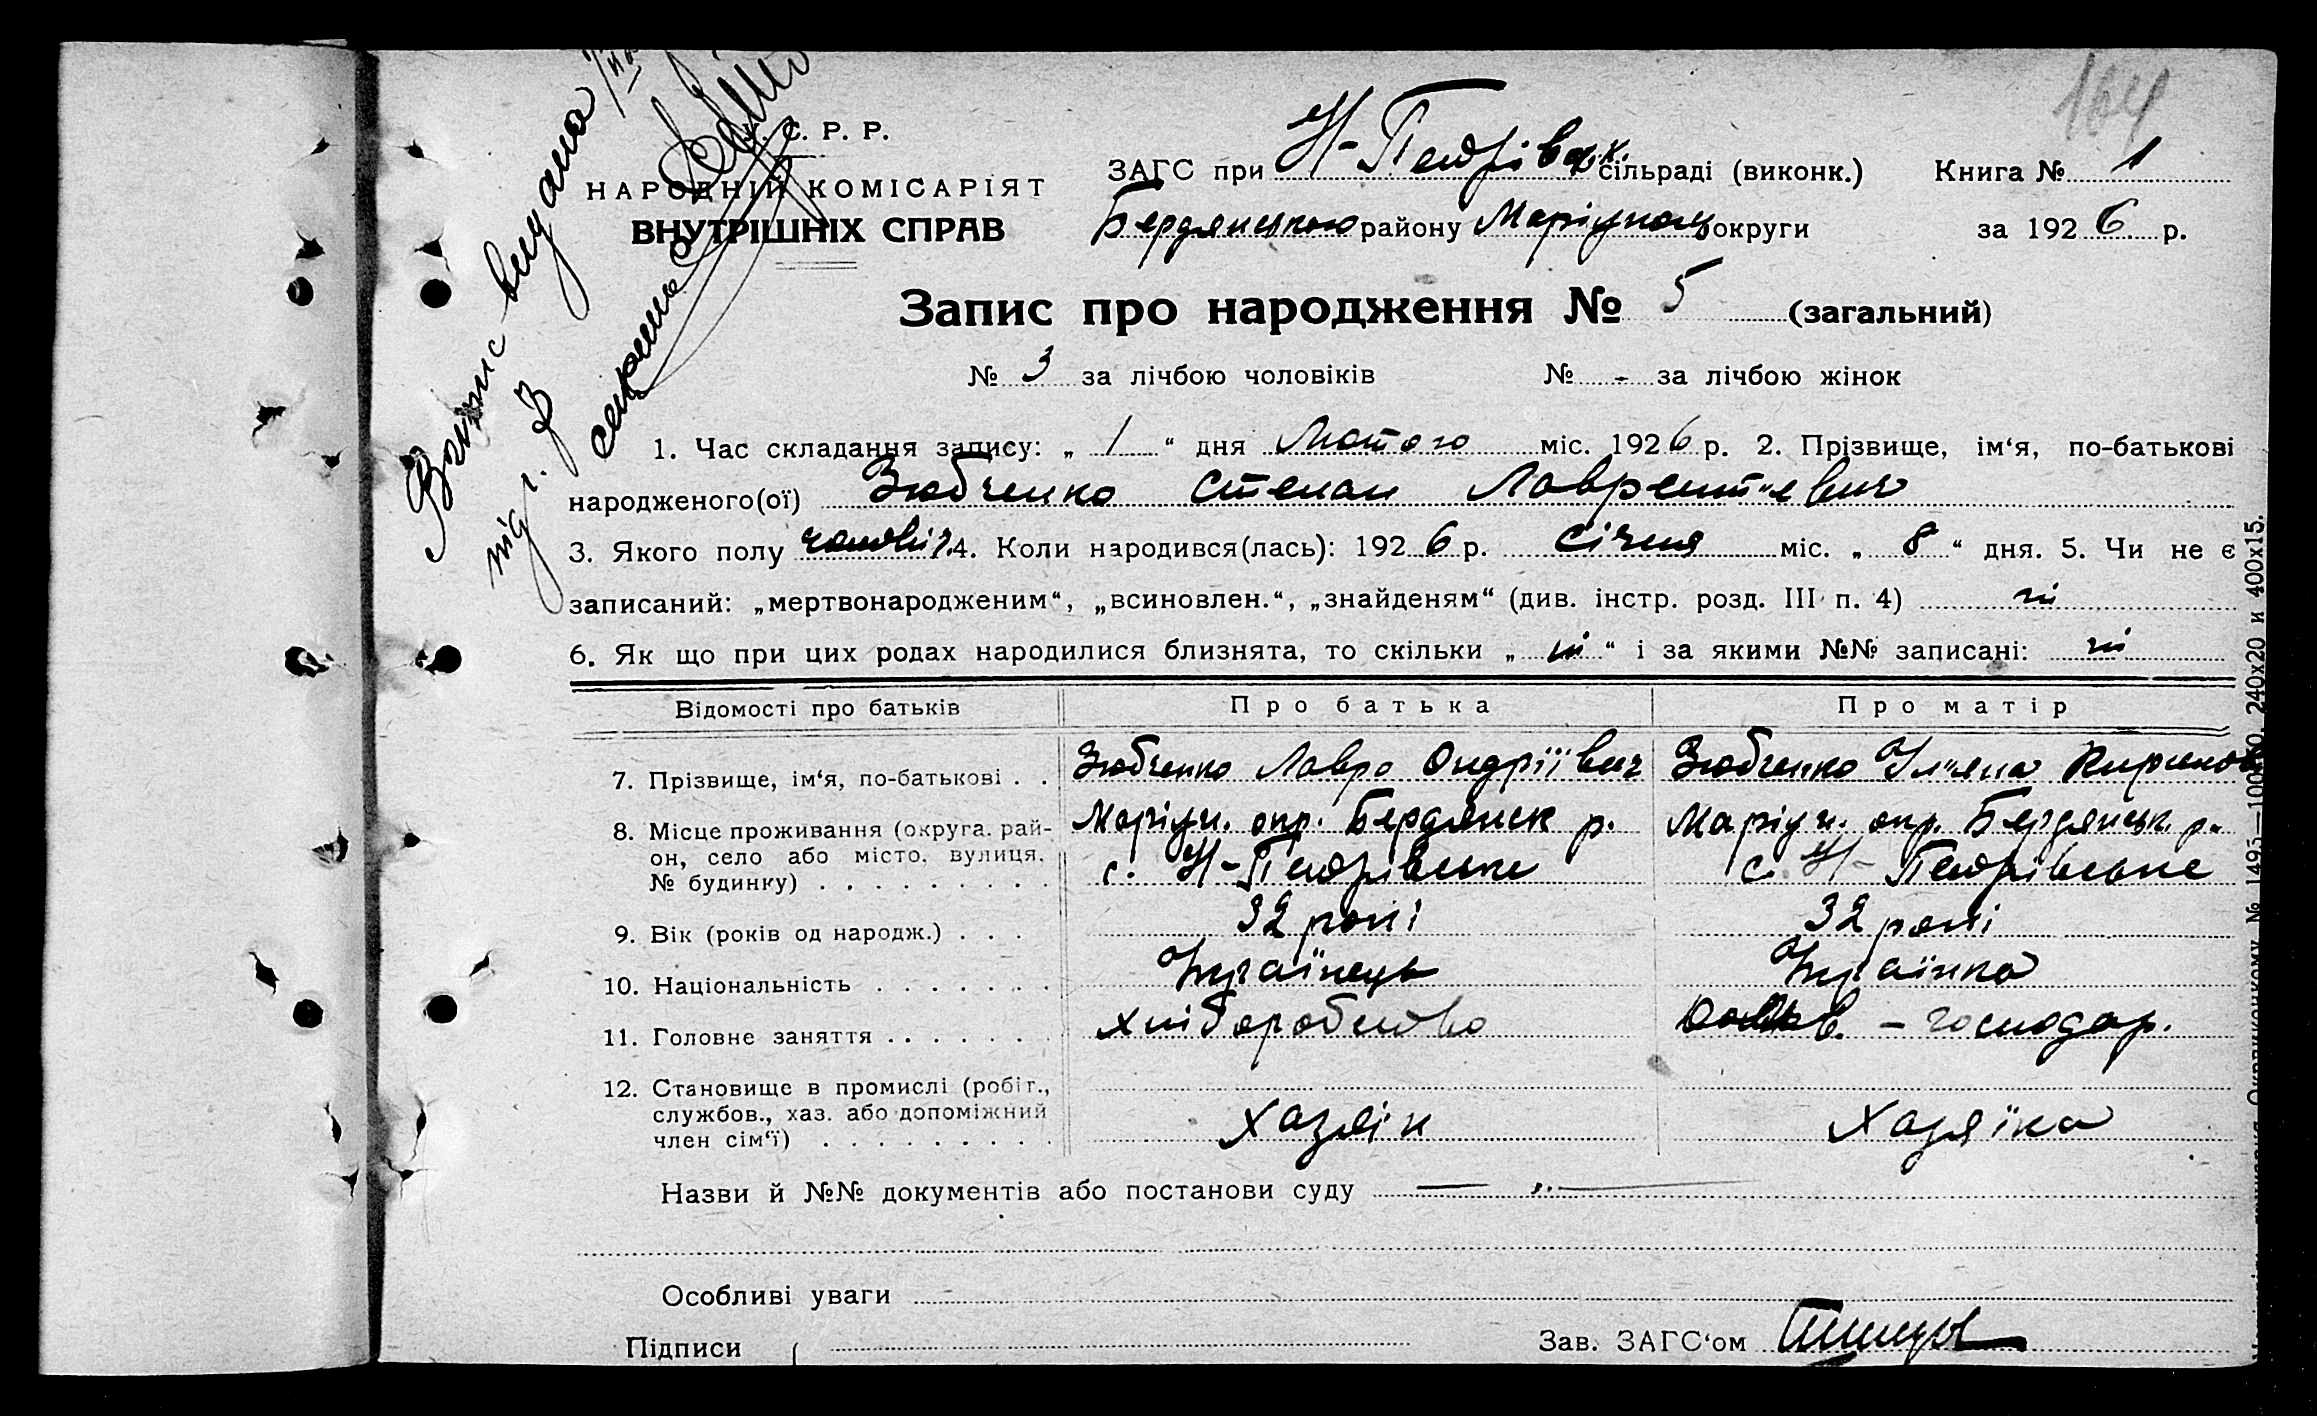 164
С. Р. Р.
НАРОДНІЙ КОМІСАРІЯТ
ВНУТРІШНІХ СПРАВ
ЗАГС при Н-Петрівськ. сільраді (виконк.) Книга № 1
Бердянського району Маріупольськ округи за 1926 р.
Запис про народження № 5 (загальний)
№ 3 за лічбою чоловіків № - за лічбою жінок
Випис видана
під г.
1. Час складання запису: „ 1 “ дня Лютого міс. 1926 р. 2. Прізвище, ім‘я, по-батькові
народженого(ої) Зюбченко Степан Лаврентьевич
3. Якого полу чоловіч. 4. Коли народився(лась): 1926 р. Січня міс. „ 8 “ дня. 5. Чи не є
записаний: „мертвонародженим“, „всиновлен.“, „знайденям“ (див. інстр. розд. III п. 4) ні
6. Як що при цих родах народилися близнята, то скільки „ ні “ і за якими №№ записані: ні
Відомості про батьків Про батька Про матір
7. Прізвище, ім‘я, по-батькові . . Зюбченко Лавро Ондріївич Зюбченко Ул"яна Кирилов
8. Місце проживання (округа, рай- Маріуп. окр. Бердянськ р. Маріуп. окр. Бердянськ. р.
он, село або місто, вулиця, с. Н-Петрівське с. Н-Петрівське
№ будинку) . . . . . . . . .
9. Вік (років од народж.) . . . 32 рокі 32 рокі
10. Національність . . . . . . . Українець Українка
11. Головне заняття . . . . . . . хліборобство - господар.
12. Становище в промислі (робіт.,
службов., хаз. або допоміжний Хазяїн Хазяїка
член сім‘ї) . . . . . . . . .
Назви й №№ документів або постанови суду —— „ ——
Особливі уваги
Підписи Зав. ЗАГС‘ом
240х20 и 400х15.